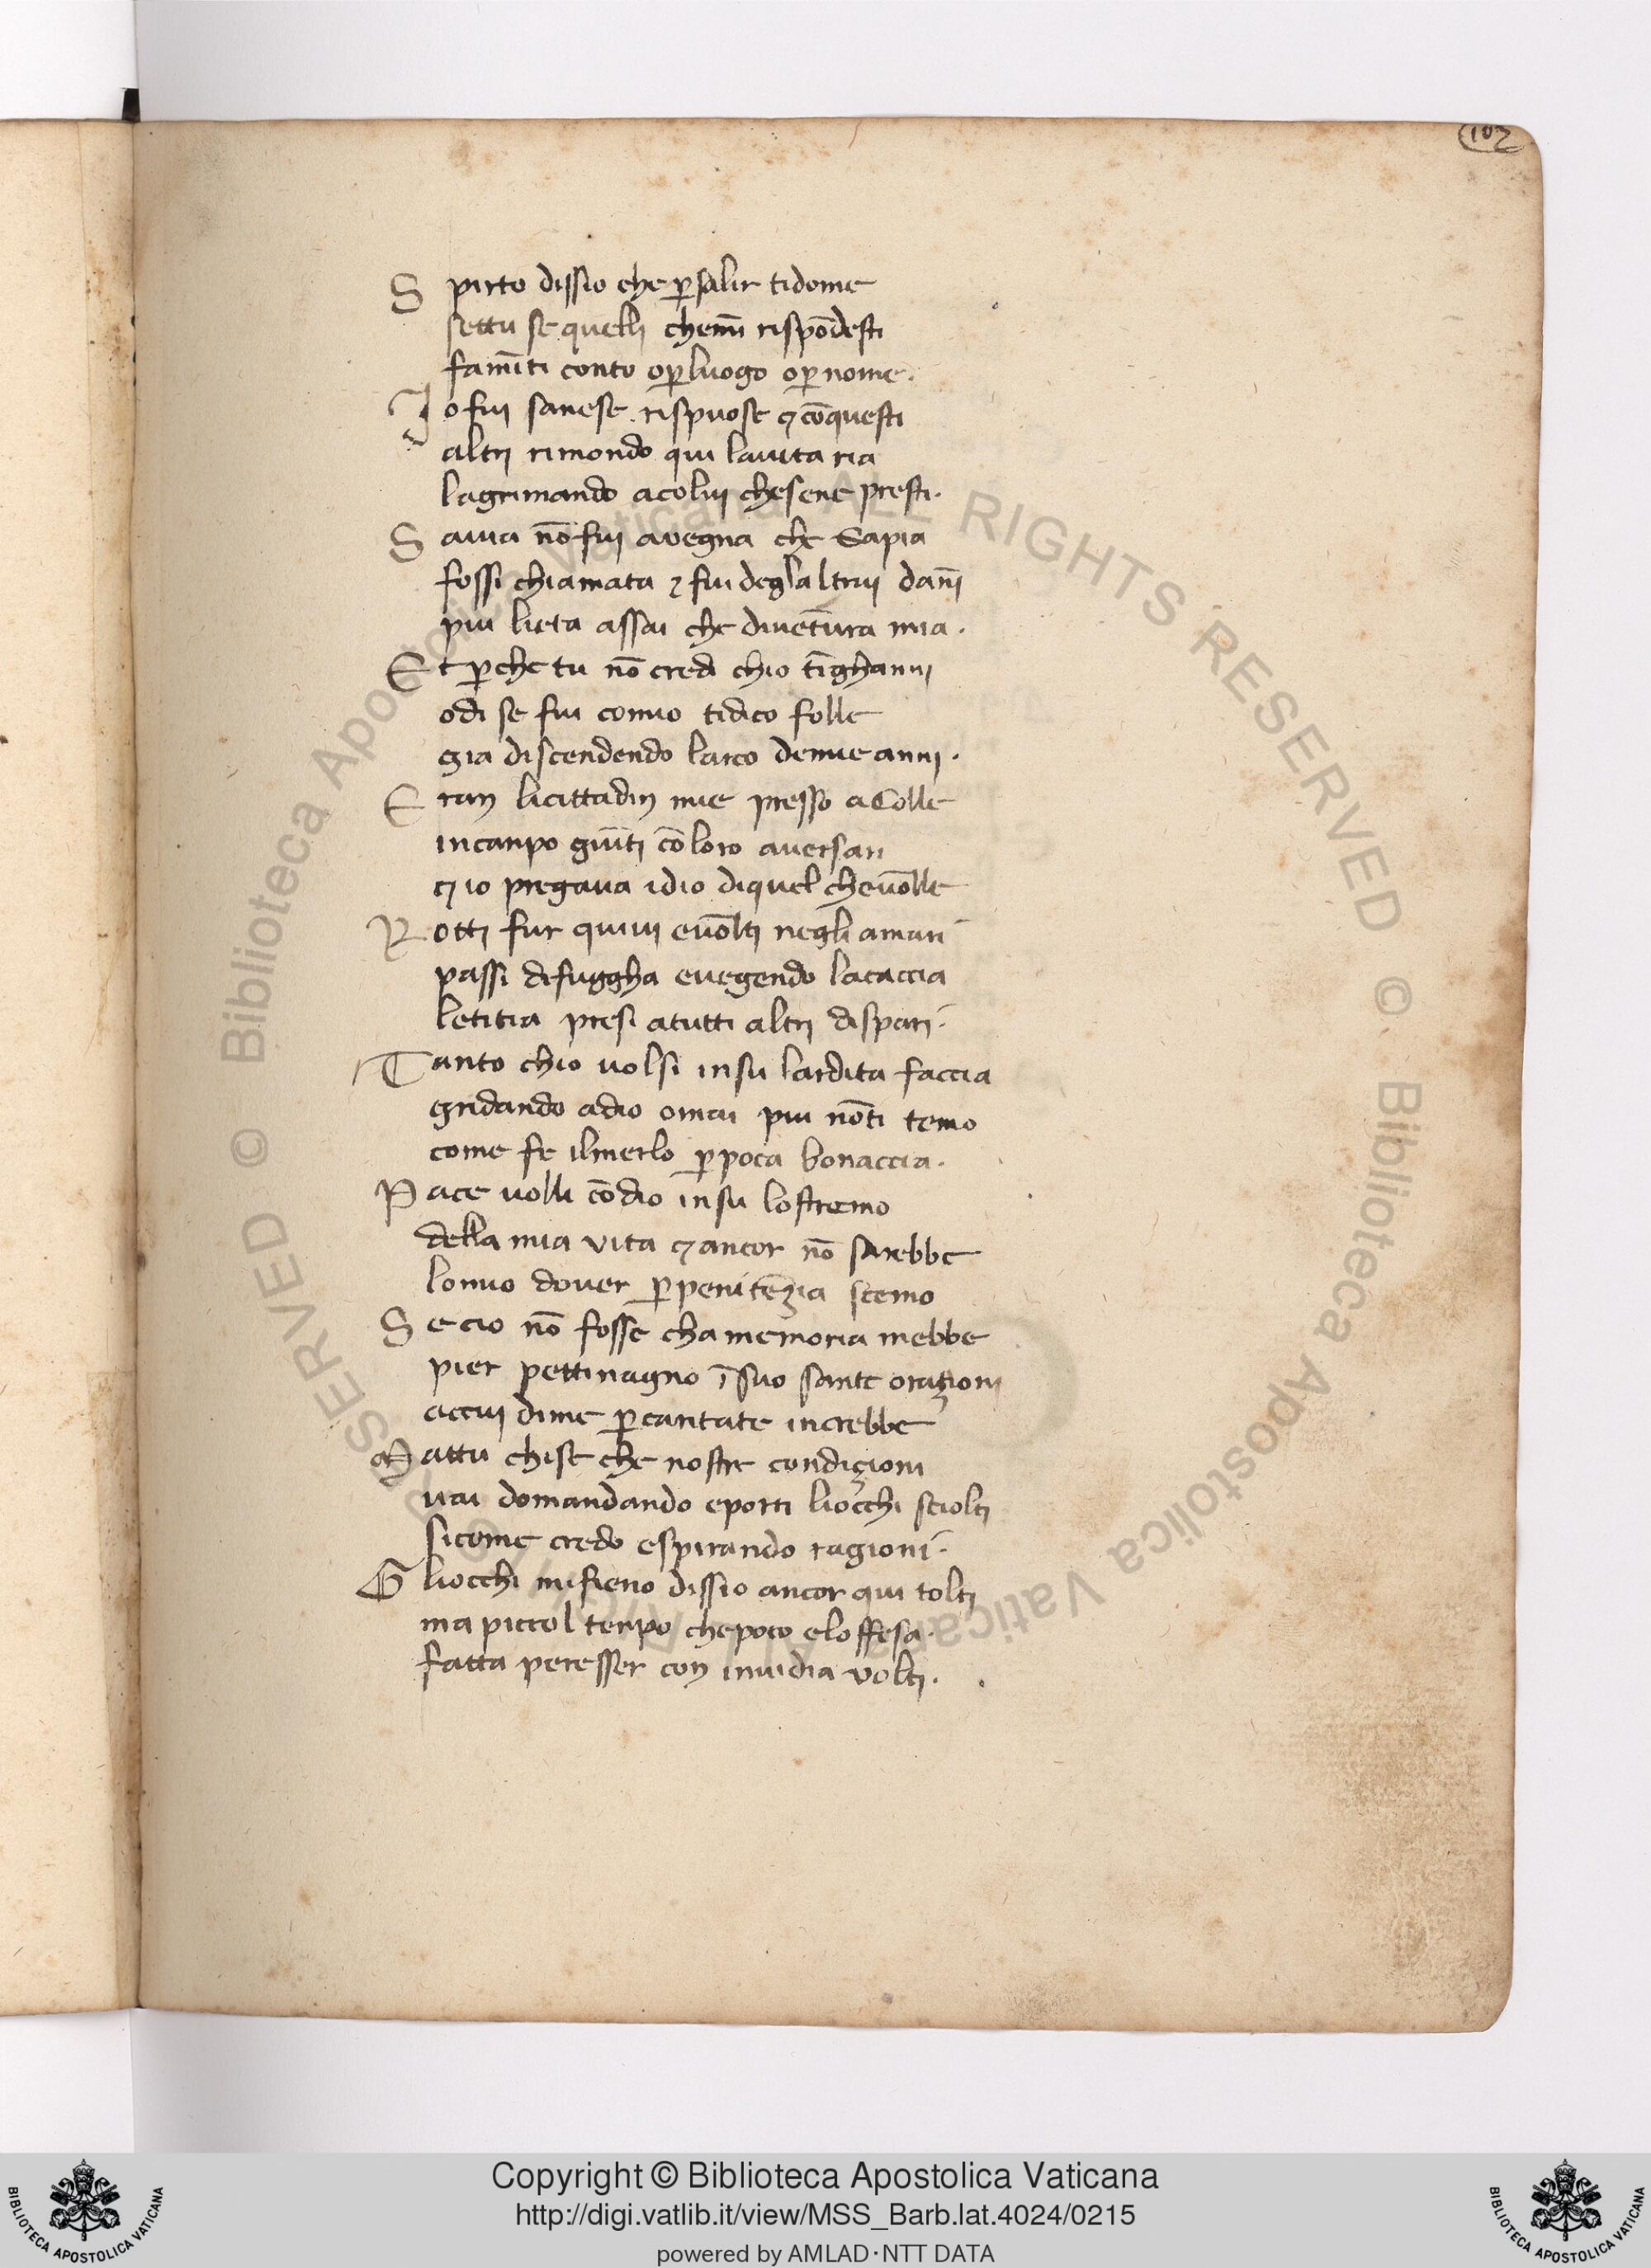 102
S pirto dissio che ꝑsalir tidome
settu se quelli chem̄ rispōdesti
fam̄iti conto oꝑluogo oꝑnome.
I o fui sanese rispuose ⁊ cōquesti
altri rimondo qui lauita ria
lagrimando acolui chesene presti.
S auia nō fui avegna che Sapia
fossi chiamata ⁊ fui degl altrui dan̄i
piu lieta assai che diuētura mia.
E t ꝑche tu nō credi chio tīghanni
odi se fui comio tidico folle
gia discendendo larco demie anni.
E ran licittadin mie presso a Colle
incanpo giūti cō loro aversari
⁊ io pregaua idio diquel cheuolle
R otti fur quiui euolti negli amari
passi difuggha euegendo lacaccia
letitia presi atutti altri dispari.
T anto chio volsi insu lardita faccia
gridando adio omai piu nōti temo
come fe ilmerlo ꝑpoca bonaccia.
P ace volli cōdio insu lostremo
della mia vita ⁊ ancor nō sarebbe
lomio dover ꝑpenitēzia scemo
S e cio nō fosse cha memoria mebbe
pier pettinagno ī suo sante orazioni
accui dime ꝑcaritate increbbe
M attu chise che nostre condiçioni
vai domandando eporti liocchi sciolti
sicome credo espirando ragioni.
G liocchi mifieno dissio ancor qui tolti
ma piccol tenpo chepoco eloffesa.
fatta peresser con inuidia volti.
© Biblioteca Apostolica Vaticana ALL RIGHTS RESERVED © Biblioteca Apostolica Vaticana ALL RIGHTS RESERVED
Copyright © Biblioteca Apostolica Vaticana
http://digi.vatlib.it/view/MSS_Barb.lat.4024/0215
powered by AMLAD·NTT DATA
BIBLIOTECA APOSTOLICA VATICANA
BIBLIOTECA APOSTOLICA VATICANA